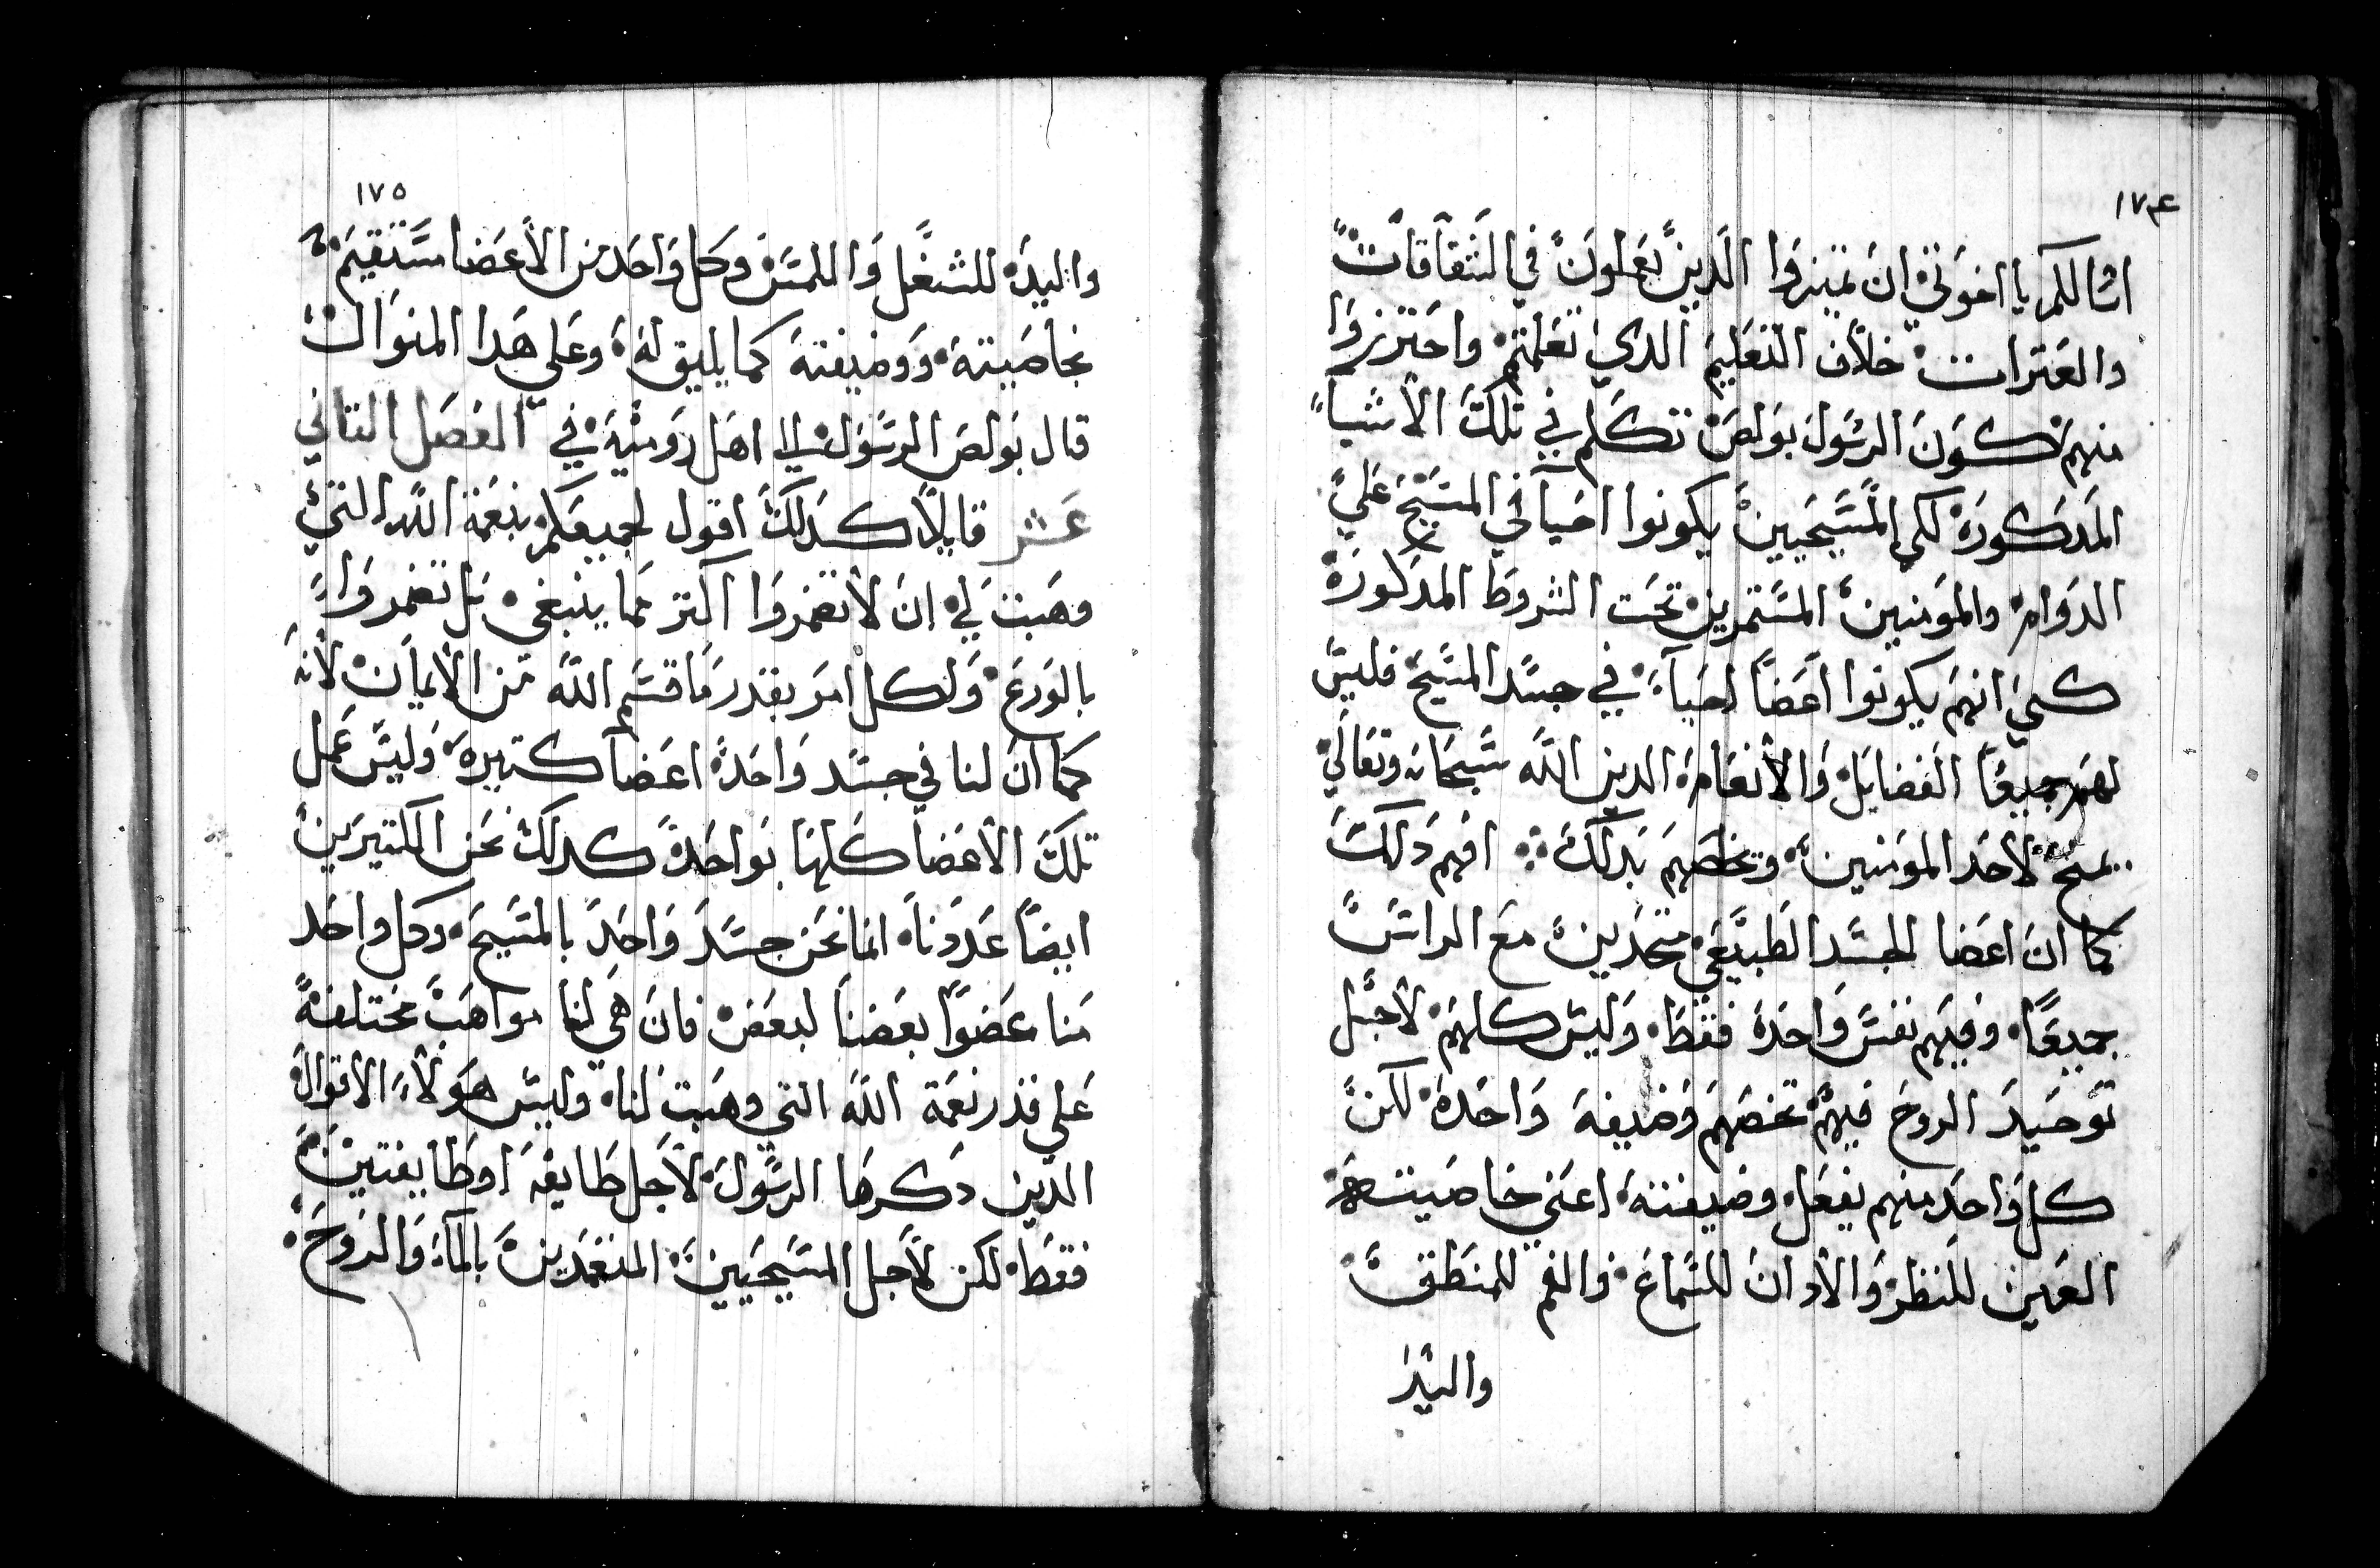 ١٧٤
اسالكم يا اخوتي ان تميزوا الدين يعملون في الشقاقات
والعترات خلاف التعليم الدي تعلمتم واحترزوا
منهم لكون الرسول بولص تكلم في تلك الأشيا
المدكوره لكي المسيحيين يكونوا احيا في المسيح علي
الدوام والمومنين المستمرين تحت الشروط المدكوره
كمي انهم يكونوا اعضاً احياء في جسد المسيح فليس
لهم جميعاً الفضايل والأنعام الدين الله سبحانه وتعالي
يمنح لاحد المومنين وتخصهم بدلك افهم دلك
كما ان اعضا الجسد الطبيعي متحدين مع الراس
جميعاً وفيهم نفس واحده فقط وليس كلهم لأجل
توحيد الروح فيهم تخصهم وضيفه واحده لكن
كل واحد منهم يفعل وضيفته اعني خاصيته
العين للنظر والأدان للسماع والفم للمنطق
واليد
١٧٥
واليده للشغل والللمس وكل واحد من الأعضا مستقيم
بخاصيته ووضيفته كما يليق له وعلي هدا المنوال
قال بولص الرسول الي اهل روميه في الفصل التاني
عشر قايلاً كدلك اقول لجميعكم بنعمة الله التي
وهبت لي ان لا تضمروا اكتر مما ينبغي بل تضمروا
بالورع ولكل امر بقدر ما قسم الله من الأيمان لأنه
كما ان لنا في جسد واحده اعضا كتيره وليس عمل
تلك الأعضا كلها بواحدة كدلك نحن الكتيرين
ايضاً عددنا انما نحن جسد واحد بالمسيح وكل واحد
منا عضواً بعضنا لبعض فان هي لنا مواهب مختلفة
علي قدر نعمة الله التي وهبت لنا وليس هولاء الأقوال
الدين دكرها الرسول لأجل طايفه او طايفتين
فقط لكن لأجل المسيحيين المنغمدين بالماء والروح